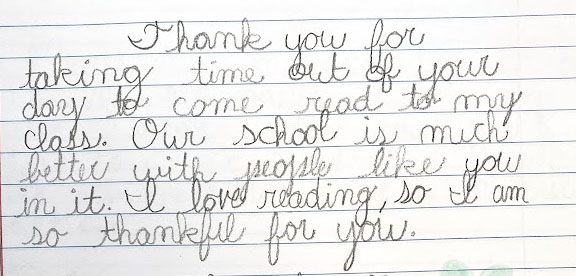 Thank you for
taking time out of your
day to come read to my
class. Our school is much
better with people like you
in it. I love reading, so I am
so thankful for you.